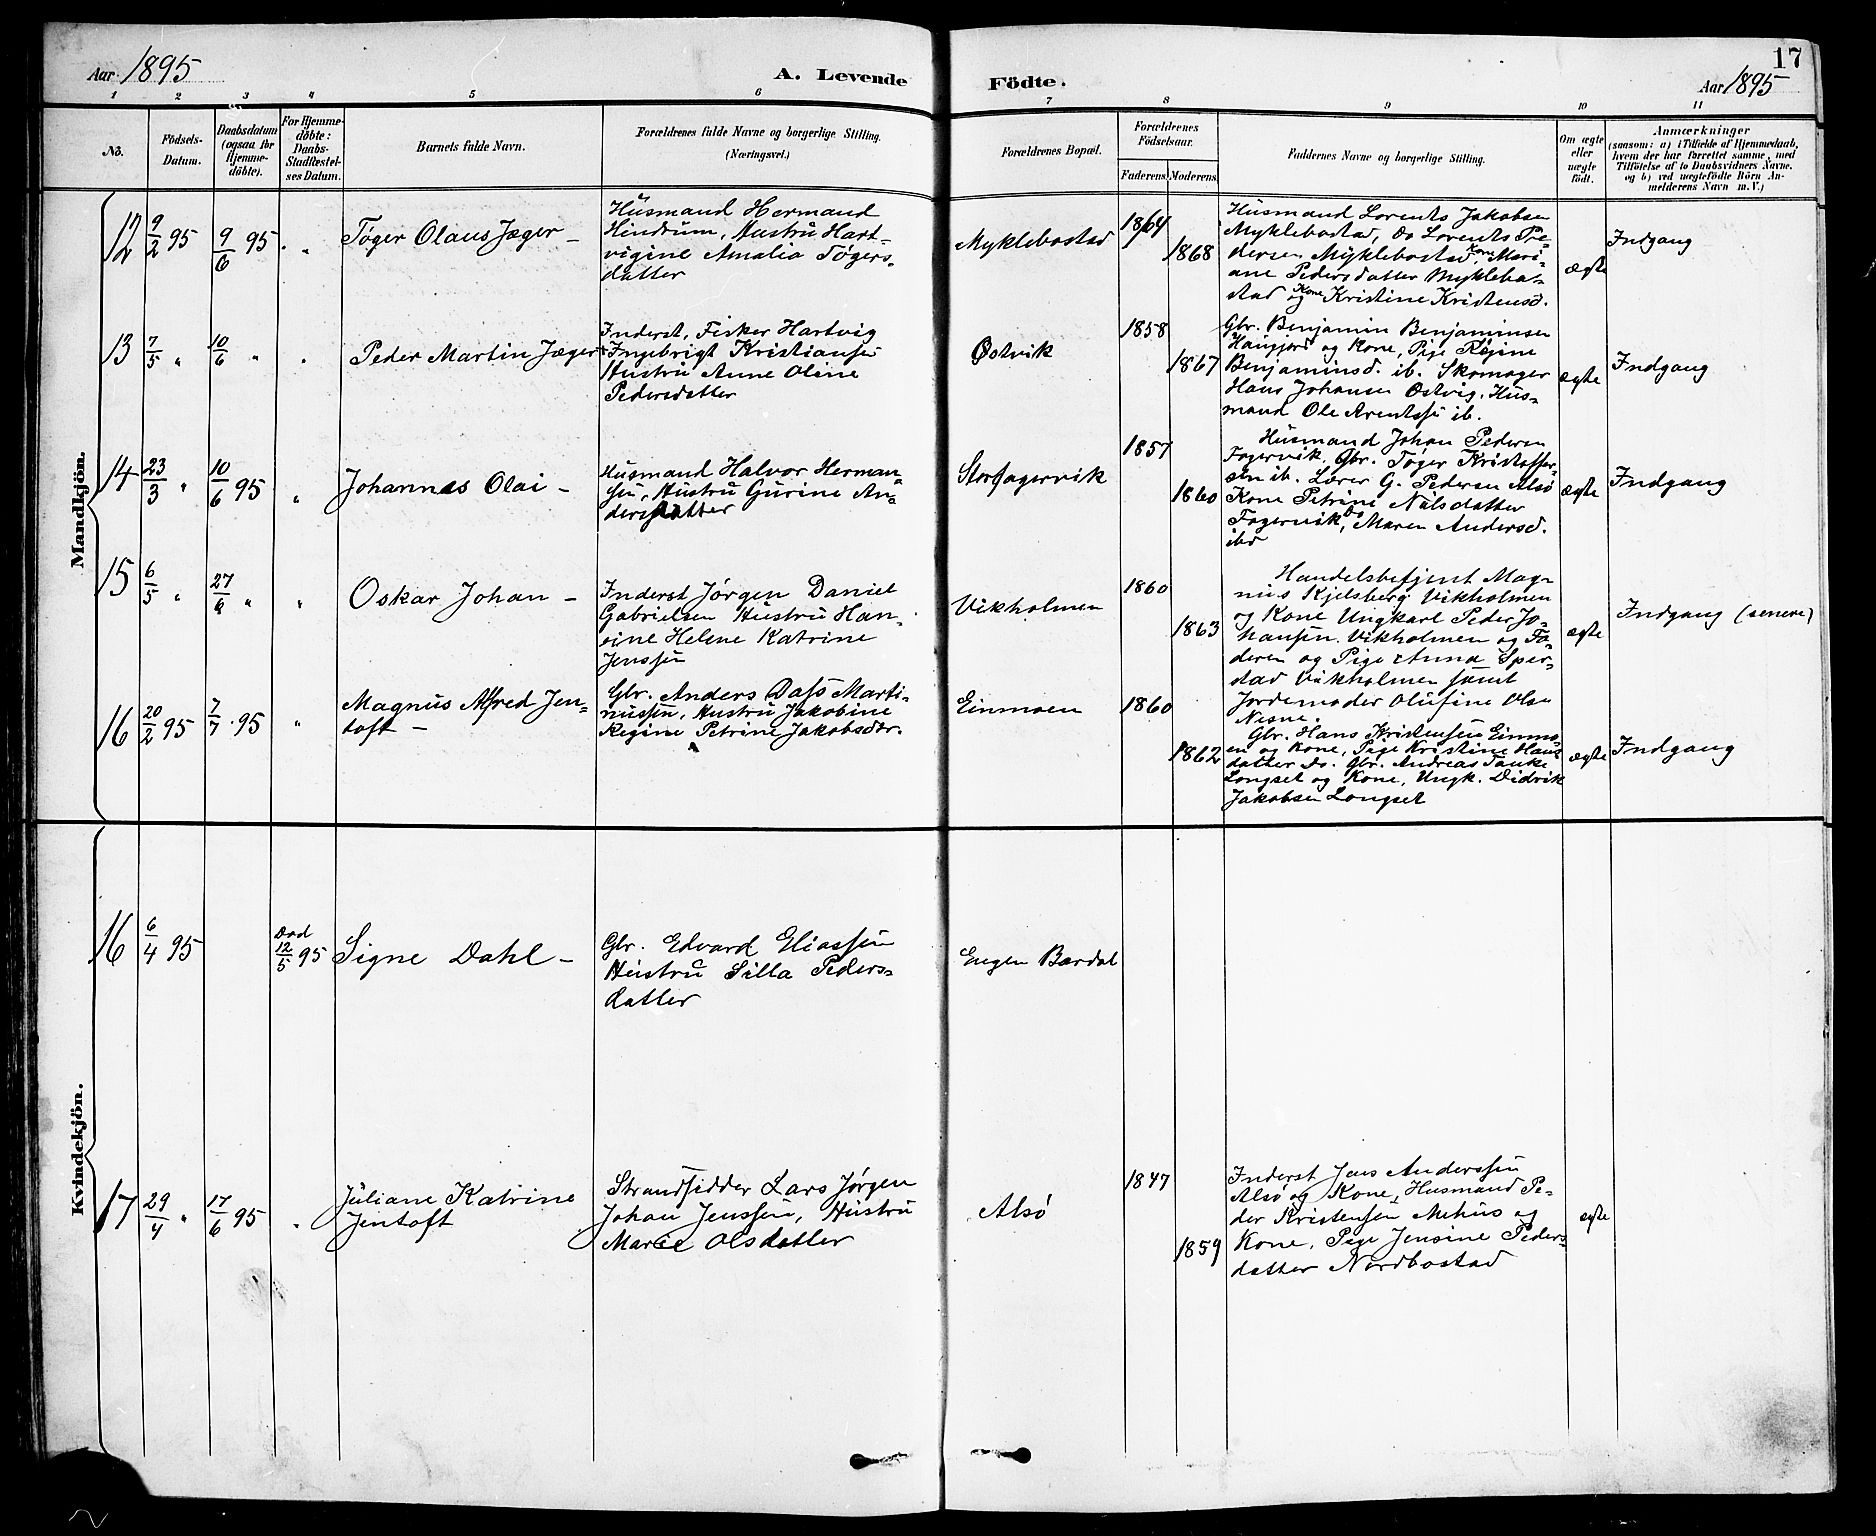 Aar 1895
A. Levende
Födte.
17
Aar 1895
1 2 3 4 5 6 7 8 9 10 11
Nò.
Födsels-
Datum.
Daabsdatum
(ogsaa for
Hjemme-
döbte).
For Hjemme-
döbte:
Daabs-
Stadfæstel-
ses Datum.
Barnets fulde Navn.
Forældrenes fulde Navne og borgerlige Stilling.
(Næringsvei.)
Forældrenes Bopæl.
Forældrenes
Födselsaar.
Faderens.
Moderens.
Faddernes Navne og borgerlige Stilling.
Om ægte
eller
uægte
födt.
Anmærkninger
(saasom: a) i Tilfælde af Hjemmedaab,
hvem der har forrettet samme, med
Tilföielse af to Daabsvidners Navne.
og b) ved uægtefödte Börn An-
melderens Navn m. V.)
Mandkjön.
12
9/2 95
9/6 95
Tøger Olaus Jæger -
Husmand Hermand
Hindrum, Hustru Hart-
vigine Amalia Tøgers-
datter
Myklebostad
1864
1868
Husmand Lorents Jakobsen
Myklebostad, Do Lorents Pe-
dersen Myklebostad Kone Mari-
ane Pedersdatter Myklebo-
stad og Kone Kristine Kristensd.
ægte
Indgang
13
7/5 "
10/6 "
Peder Martin Jæger
Inderst, Fisker Hartvig
Ingebrigt Kristiansen
Hustru Anne Oline
Pedersdatter
Østvik
1858
1867
Gbr. Benjamin Benjaminsen
og Kone, Pige Regine
Benjaminsd. ib. Skomager
Hans Johansen Østvig, Hus-
mand Ole Arentssen ib.
ægte
Indgang
14
23/3 "
10/6 95
"
Johannes Olai -
Husmand Halvor Herman-
sen, Hustru Gurine An-
dersdatter
Storfagervik
1857
1860
Husmand Johan Pedersen
Fagervik, Gbr. Tøger Kristoffer-
sen ib. Lærer G. Pedersen Alsø
Kone Petrine Nilsdatter
Fagervik, Do Maren Andersd.
ibd
ægte
Indgang
15
6/5 "
27/6 "
"
Oskar Johan -
Inderst Jørgen Daniel
Gabrielsen Hustru Han-
sine Helene Katrine
Jenssen
Vikholmen
1860
1863
Handelsbetjent Mag-
nus Kjelsberg Vikholmen
og Kone Ungkarl Peder Jo-
hansen Vikholmen og Fa-
deren og Pige Anna Sper-
stad Vikholmen samt
Jordemoder Olufine Olsen
Nesne.
ægte
Indgang (senere)
16
20/2 95
7/7 95
"
Magnus Alfred Jen-
toft -
Gbr. Anders Dass Marti-
nussen, Hustru Jakobine
Regine Petrine Jakobsdtr.
Einmoen
1860
1862
Gbr. Hans Kristensen Einmo-
en og Kone, Pige Kristine Hans-
datter Do. Gbr. Andreas
Longset og Kone, Ungk. Didrik
Jakobsen Longset
ægte
Indgang
Kvindekjön.
16
6/4 95
Død
12/5 95
Signe Dahl -
Gbr. Edvard Eliassen
Hustru Silla Peders-
datter
Engen Bardal
17
29/4 "
17/6 95
"
Juliane Katrine
Jentoft
Strandsidder Lars Jørgen
Johan Jenssen, Hustru
Marie Olsdatter
Alsø
1847
1859
Inderst Jens Anderssen
Alsø og Kone, Husmand Pe-
der Kristensen Mehus og
Kone, Pige Jensine Peders-
datter Nordbostad
ægte